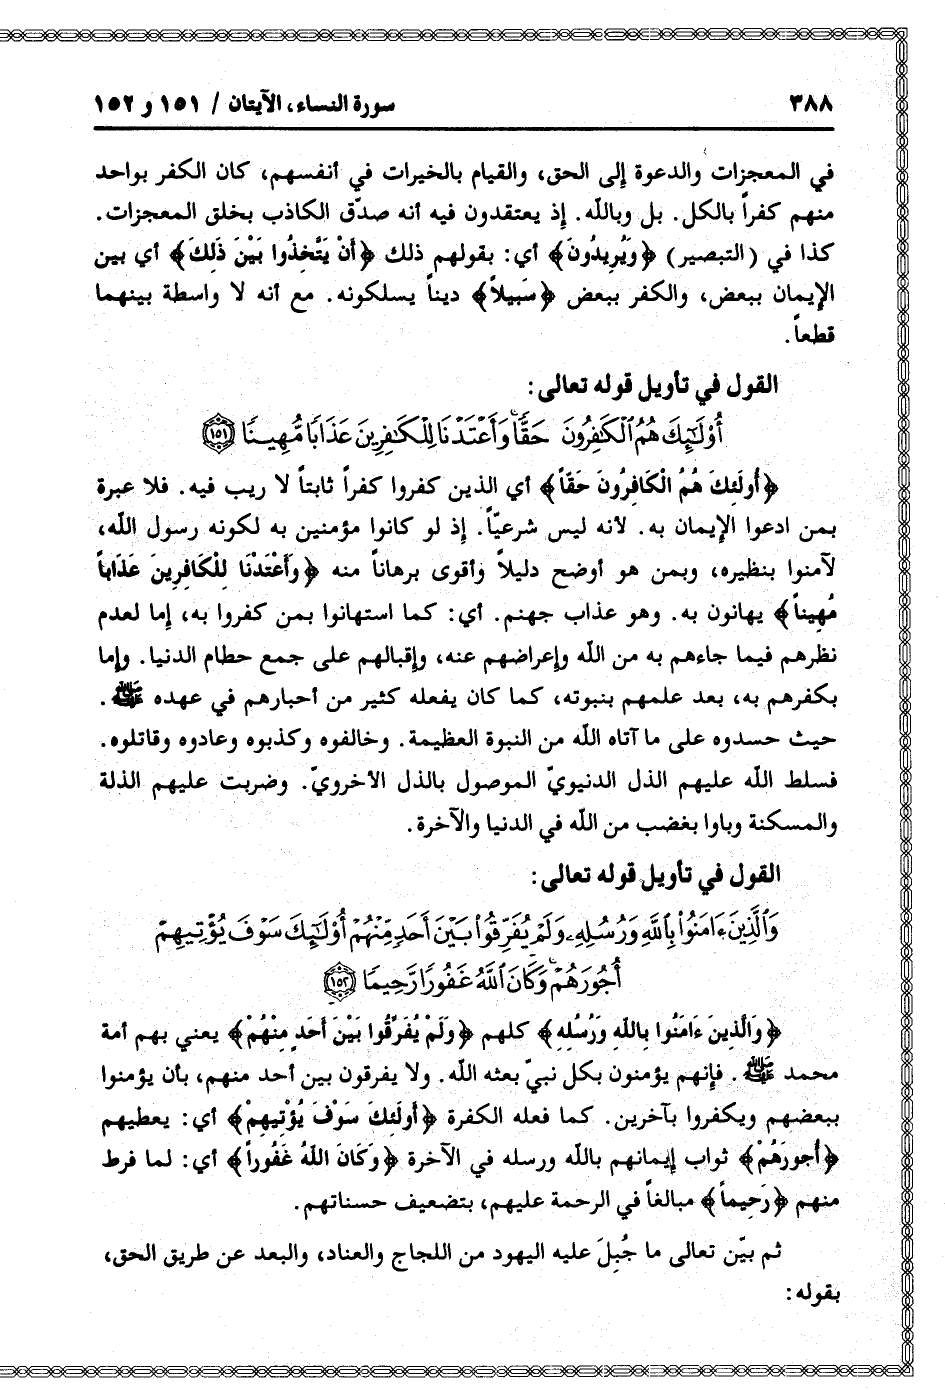 ٣٨٨
سورة النساء، الآيتان / ١٥١ و ١٥٢
في المعجزات والدعوة إلى الحق، والقيام بالخيرات في أنفسهم، كان الكفر بواحد
منهم كفراً بالكل. بل وبالله. إذ يعتقدون فيه أنه صدّق الكاذب بخلق المعجزات.
كذا في (التبصير) ﴿وَيُرِيدُونَ﴾ أي: بقولهم ذلك ﴿أَنْ يَتَّخِذُوا بَيْنَ ذَلِكَ﴾ أي بين
الإيمان ببعض، والكفر ببعض ﴿سَبِيلاً﴾ ديناً يسلكونه. مع أنه لا واسطة بينهما
قطعاً.
القول في تأويل قوله تعالى:
أُوْلَٰٓئِكَ هُمُ ٱلْكَٰفِرُونَ حَقًّا ۚ وَأَعْتَدْنَا لِلْكَٰفِرِينَ عَذَابًا مُّهِينًا ١٥١
﴿أُولَئِكَ هُمُ الْكَافِرُونَ حَقّاً﴾ أي الذين كفروا كفراً ثابتاً لا ريب فيه. فلا عبرة
بمن ادعوا الإيمان به. لأنه ليس شرعيّاً. إذ لو كانوا مؤمنين به لكونه رسول الله،
لآمنوا بنظيره، وبمن هو أوضح دليلاً وأقوى برهاناً منه ﴿وَأَعْتَدْنَا لِلْكَافِرِينَ عَذَاباً
مُهِيناً﴾ يهانون به. وهو عذاب جهنم. أي: كما استهانوا بمن كفروا به، إما لعدم
نظرهم فيما جاءهم به من الله وإعراضهم عنه، وإقبالهم على جمع حطام الدنيا. وإما
بكفرهم به، بعد علمهم بنبوته، كما كان يفعله كثير من أحبارهم في عهده ﷺ.
حيث حسدوه على ما آتاه الله من النبوة العظيمة. وخالفوه وكذبوه وعادوه وقاتلوه.
فسلط الله عليهم الذل الدنيويّ الموصول بالذل الأخرويّ. وضربت عليهم الذلة
والمسكنة وباوا بغضب من الله في الدنيا والآخرة.
القول في تأويل قوله تعالى:
وَٱلَّذِينَ ءَامَنُوا۟ بِٱللَّهِ وَرُسُلِهِۦ وَلَمْ يُفَرِّقُوا۟ بَيْنَ أَحَدٍ مِّنْهُمْ أُوْلَٰٓئِكَ سَوْفَ يُؤْتِيهِمْ
أُجُورَهُمْ ۗ وَكَانَ ٱللَّهُ غَفُورًا رَّحِيمًا ١٥٢
﴿وَالَّذِينَ ءَامَنُوا بِاللهِ وَرُسُلِهِ﴾ كلهم ﴿وَلَمْ يُفَرِّقُوا بَيْنَ أَحَدٍ مِنْهُمْ﴾ يعني بهم أمة
محمد ﷺ. فإنهم يؤمنون بكل نبيّ بعثه الله. ولا يفرقون بين أحد منهم، بأن يؤمنوا
ببعضهم ويكفروا بآخرين. كما فعله الكفرة ﴿أُولَئِكَ سَوْفَ يُؤْتِيهِمْ﴾ أي: يعطيهم
﴿أُجورَهُمْ﴾ ثواب إيمانهم بالله ورسله في الآخرة ﴿وَكَانَ اللهُ غَفُوراً﴾ أي: لما فرط
منهم ﴿رَحِيماً﴾ مبالغاً في الرحمة عليهم، بتضعيف حسناتهم.
ثم بيّن تعالى ما جُبِلَ عليه اليهود من اللجاج والعناد، والبعد عن طريق الحق،
بقوله: